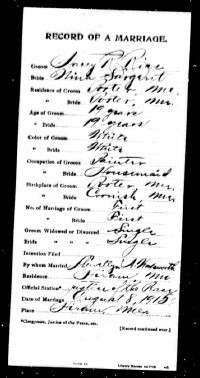 RECORD OF A MARRIAGE.
Groom Harry R. Rice
Bride Nina Sargent
Residence of Groom Porter, Me.
" Bride Porter, Me.
Age of Groom 19 years
" Bride 19 years
Color of Groom White
" Bride White
Occupation of Groom Painter
" Bride Housemaid
Birthplace of Groom Porter, Me.
" Bride Cornish, Me.
No. of Marriage of Groom First
" " Bride First
Groom Widowed or Divorced Single
Bride " " " Single
Intention Filed
By whom Married Wadsworth
Residence Hiram, Me.
Official Station* Justice of the Peace
Date of Marriage August 8, 1915
Place Hiram, Me.
*Clergyman, Justice of the Peace, etc.
[Record continued over.]